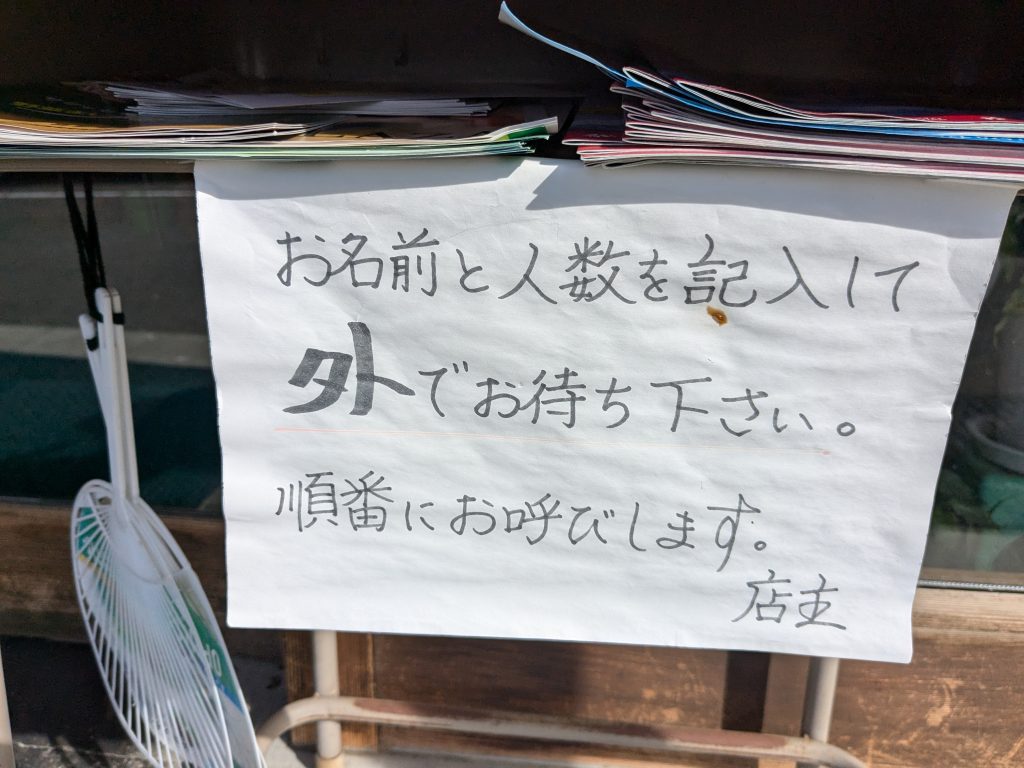 お名前と人数を記入して
外でお待ち下さい。
順番にお呼びします。
店主